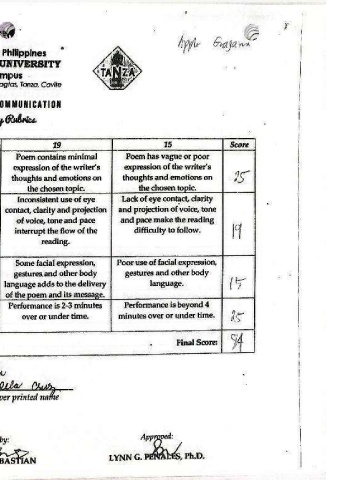 Philippines
UNIVERSITY
mpus
Tanza, Cavite
TANZA
OMMUNICATION
y Rubrics
19 15 Score
Poem contains minimal expression of the writer's thoughts and emotions on the chosen topic. Poem has vague or poor expression of the writer's thoughts and emotions on the chosen topic. 25
Inconsistent use of eye contact, clarity and projection of voice, tone and pace interrupt the flow of the reading. Lack of eye contact, clarity and projection of voice, tone and pace make the reading difficulty to follow. 19
Some facial expression, gestures and other body language adds to the delivery of the poem and its message. Poor use of facial expression, gestures and other body language. 15
Performance is 2-3 minutes over or under time. Performance is beyond 4 minutes over or under time. 25
Final Score: 84
dela Cruz
ver printed name
by:
Approved:
BASTIAN
LYNN G. PENALES, Ph.D.